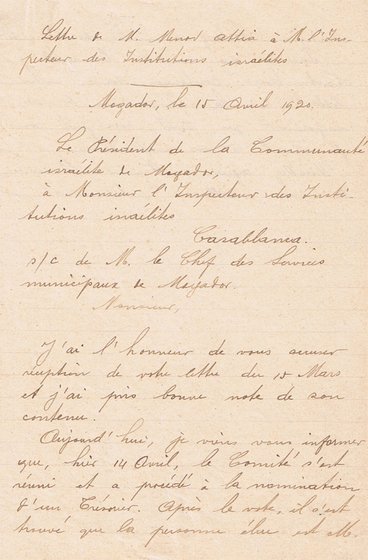 Lettre de M. Menod Attia à M. l'Ins-
pecteur des Institutions israélites
Mogador, le 15 Avril 1920.
Le Président de la Communauté
israélite de Mogador,
à Monsieur l'Inspecteur des Insti-
tutions israélites
Casablanca.
s/c de M. le Chef des Services
municipaux de Mogador.
Monsieur,
J'ai l'honneur de vous accuser
réception de votre lettre du Mars
et j'ai pris bonne note de son
contenu.
Aujourd'hui, je viens vous informer
que, hier 14 Avril, le Comité s'est
réuni et a procédé à la nomination
d'un Trésorier. Après le vote, il s'est
trouvé que la personne élue est M.